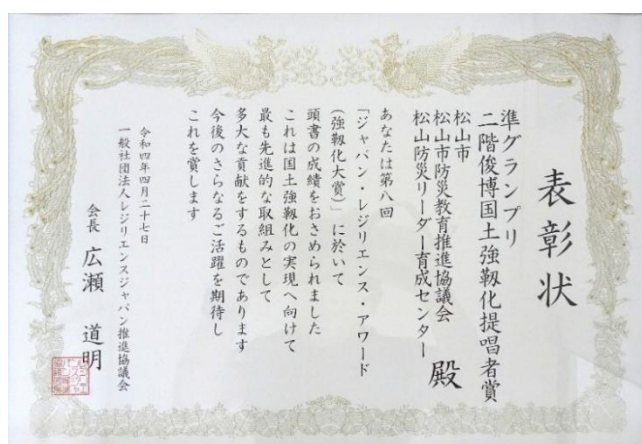 表彰状
準グランプリ
二階俊博国土強靱化提唱者賞
松山市
松山市防災教育推進協議会
松山防災リーダー育成センター
殿
あなたは第八回
「ジャパン・レジリエンス・アワード
(強靱化大賞)」に於いて
頭書の成績をおさめられました
これは国土強靱化の実現へ向けて
最も先進的な取組みとして
多大な貢献をするものであります
今後のさらなるご活躍を期待し
これを賞します
令和四年四月二十七日
一般社団法人レジリエンスジャパン推進協議会
会長 広瀬 道明